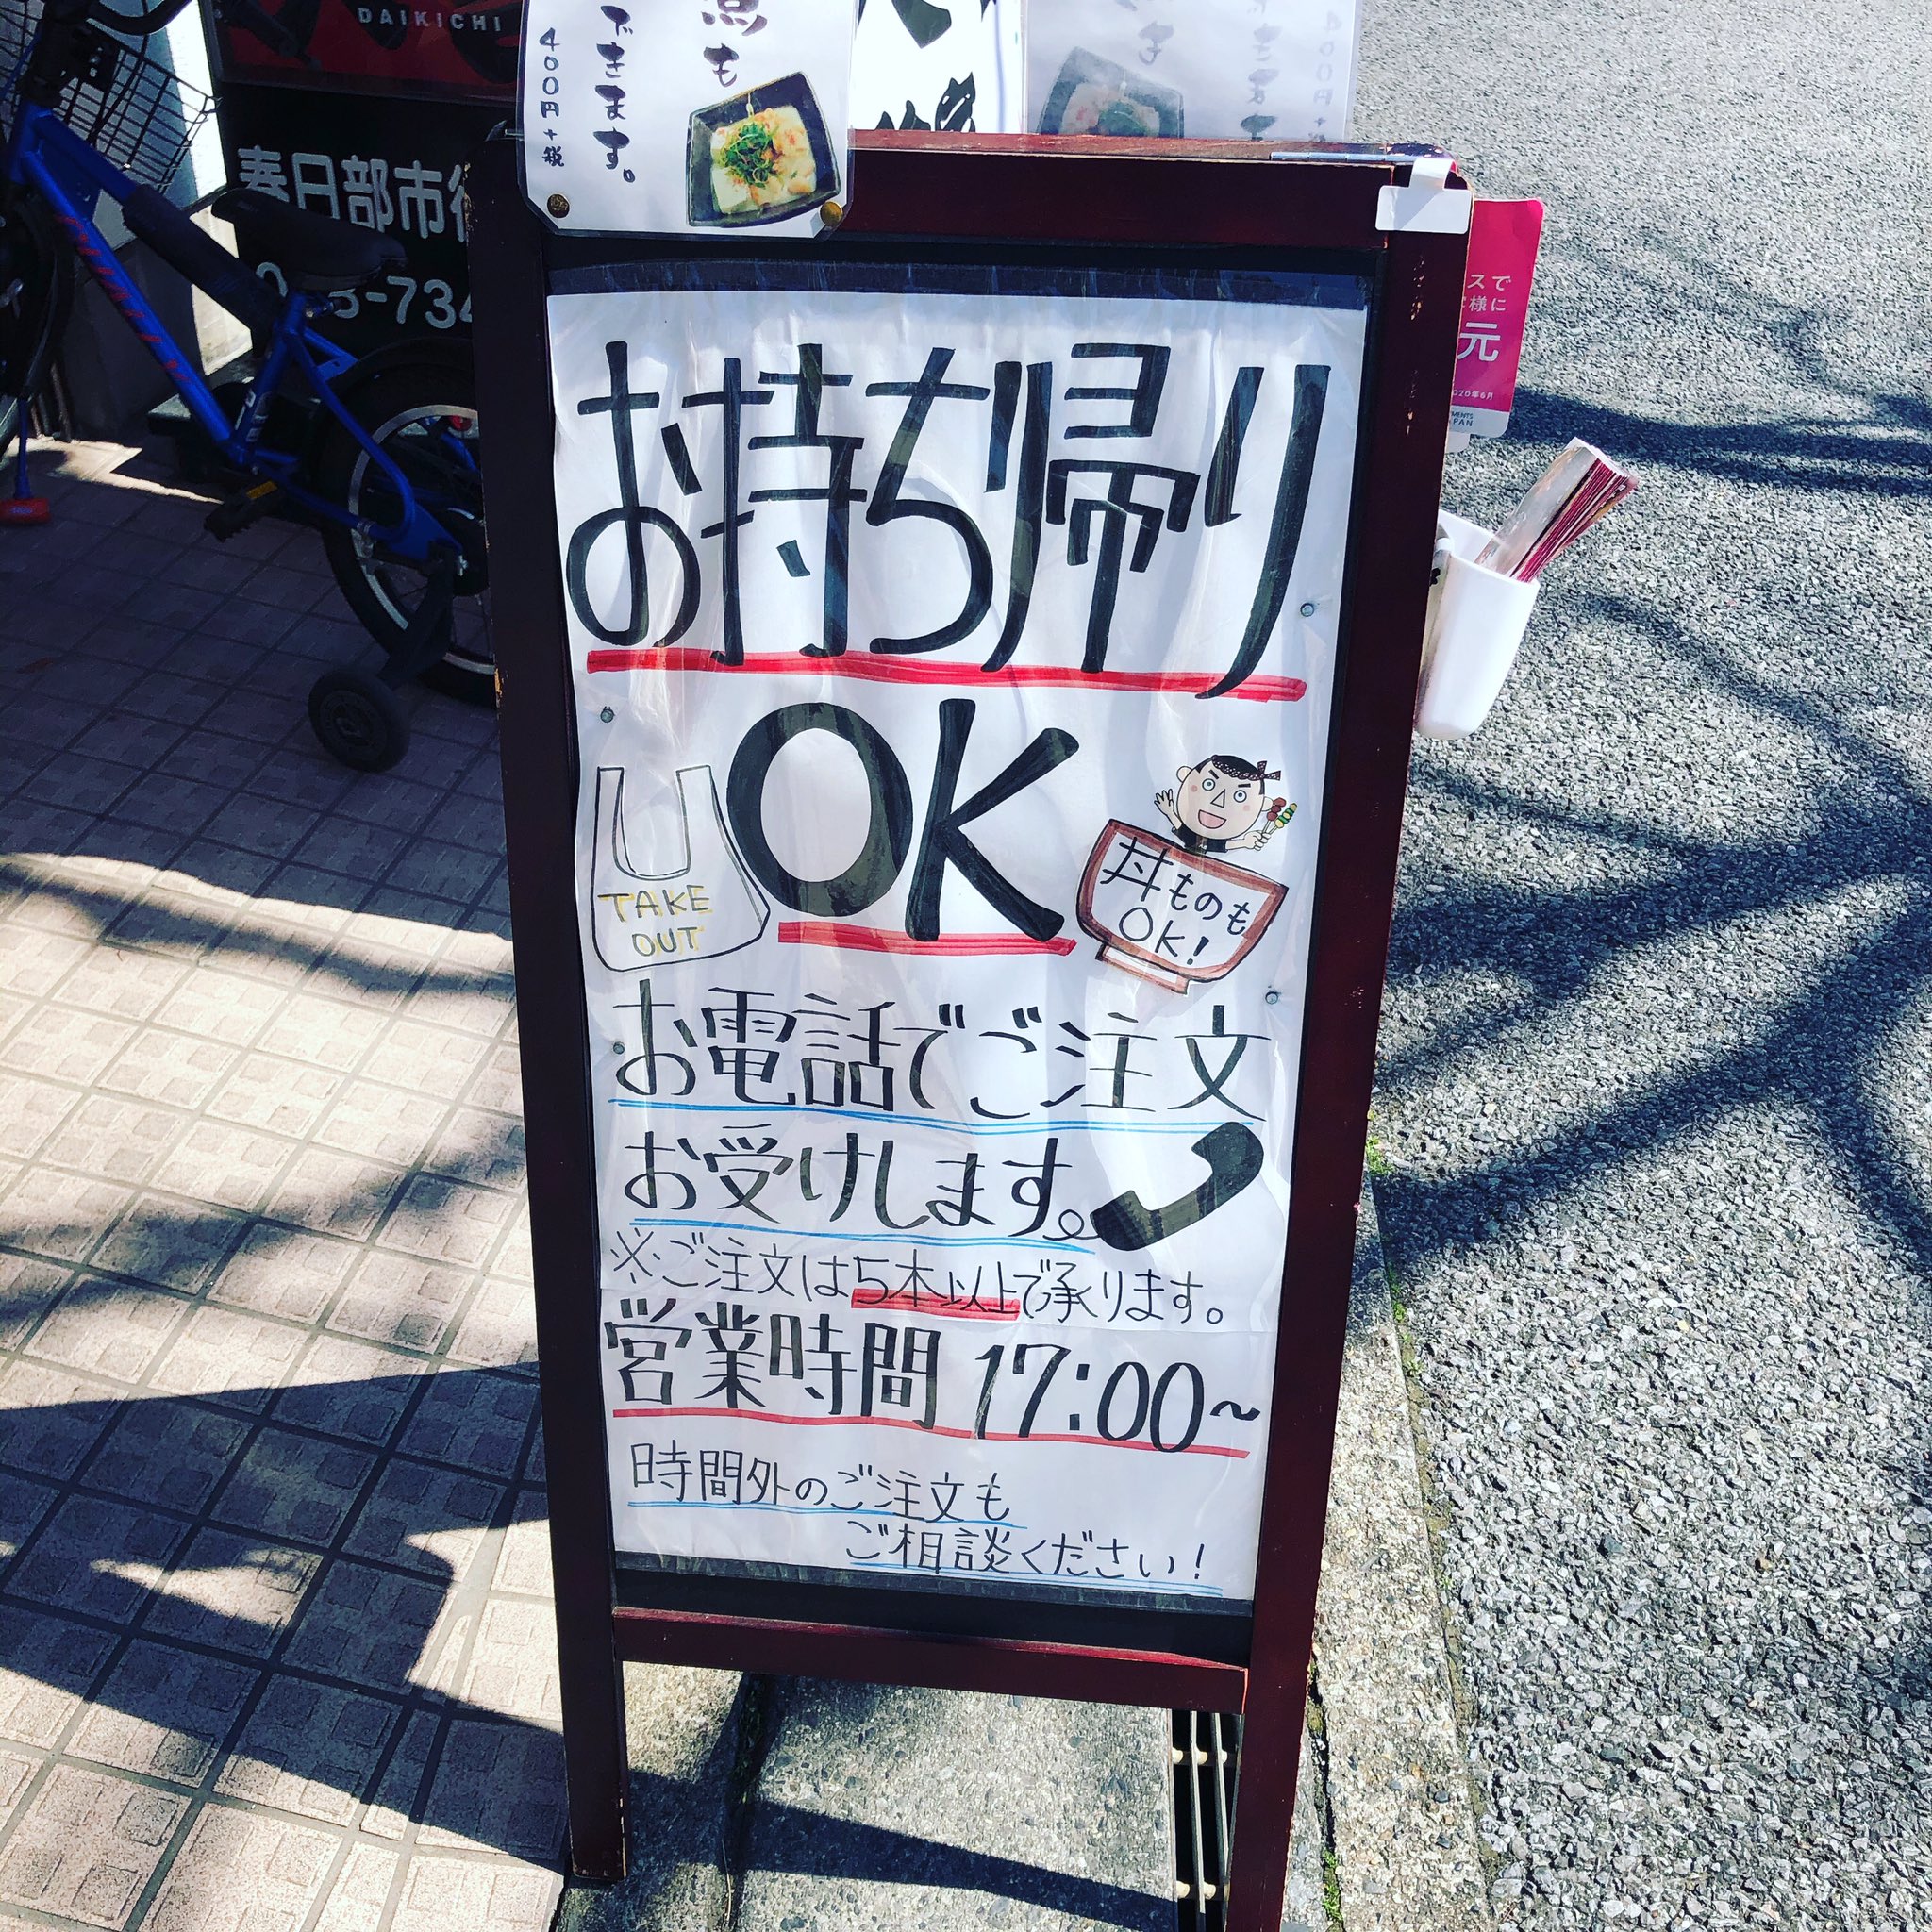 DAIKICHI
煮も
できます。
400円+税
春日部市
-734
スで
様に
元
2020年6月
お持ち帰り
OK
TAKE
OUT
丼ものも
OK!
お電話でご注文
お受けします。
※ご注文は5本以上で承ります。
営業時間 17:00~
時間外のご注文も
ご相談ください!